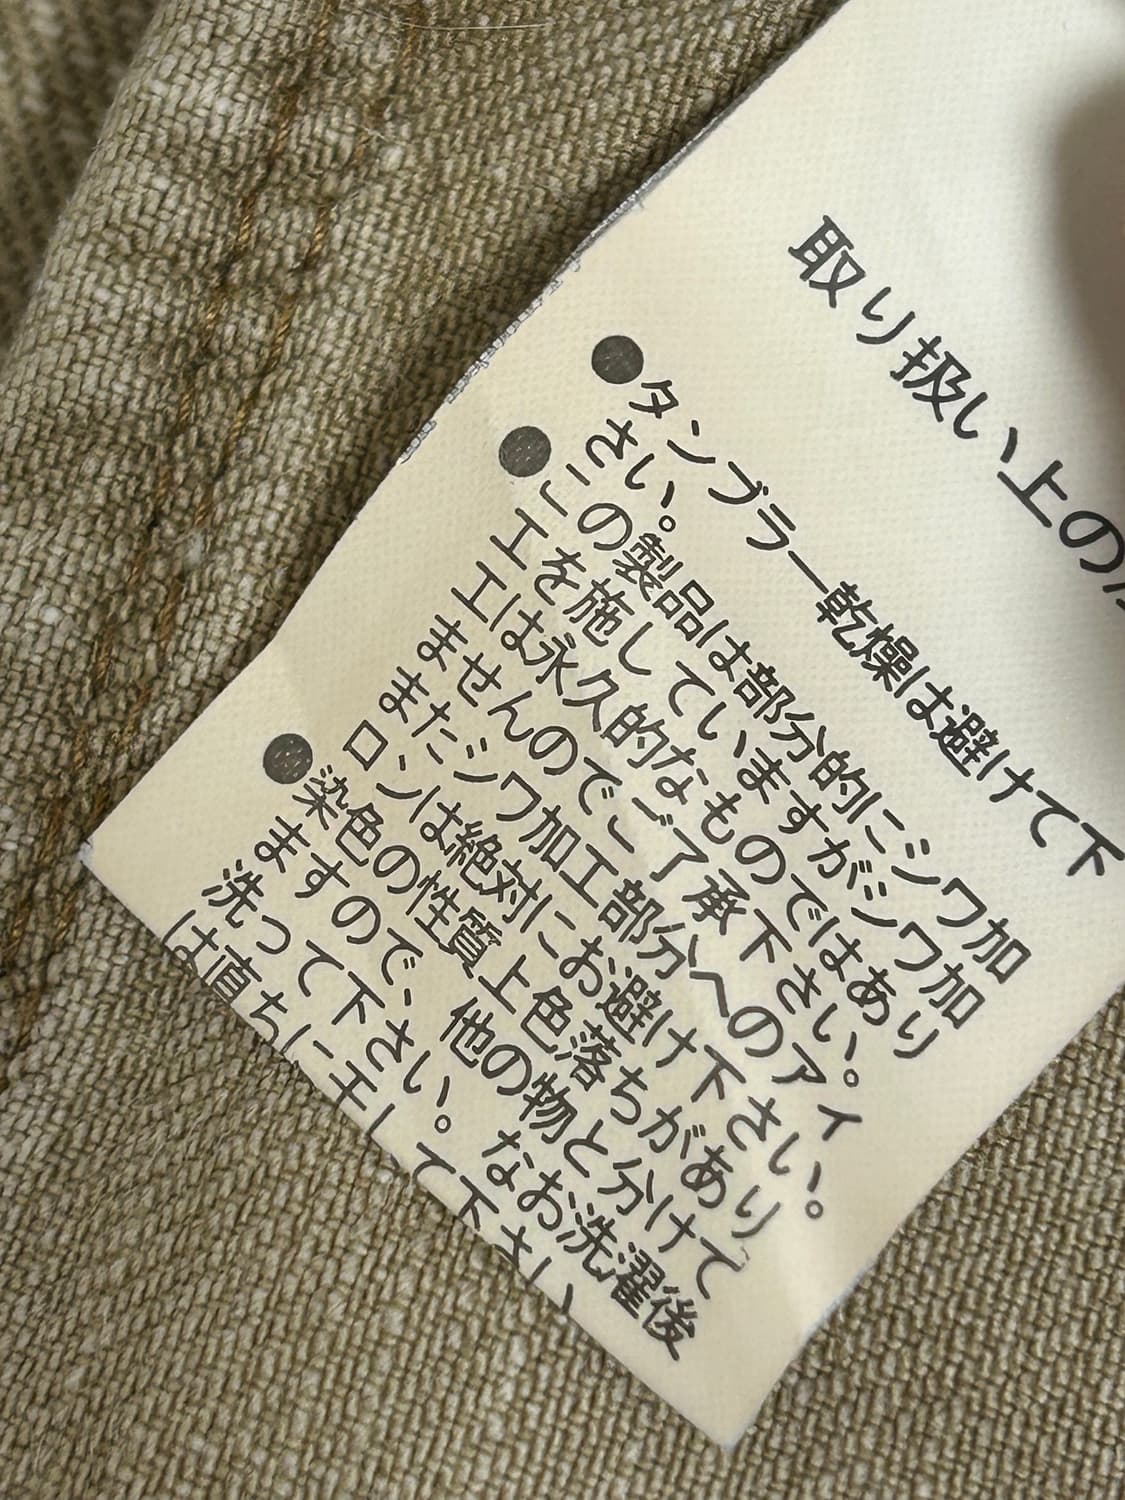 取り扱い上の
●タンブラー乾燥は避けて下
さい。
●この製品は部分的にシワ加
工を施していますがシワ加
工は永久的なものではあり
ませんのでご了承下さい。
またシワ加工部分へのアイ
ロンは絶対にお避け下さい。
●染色の性質上色落ちがあり
ますので、他の物と分けて
洗って下さい。なお洗濯後
は直ちに干して下さい